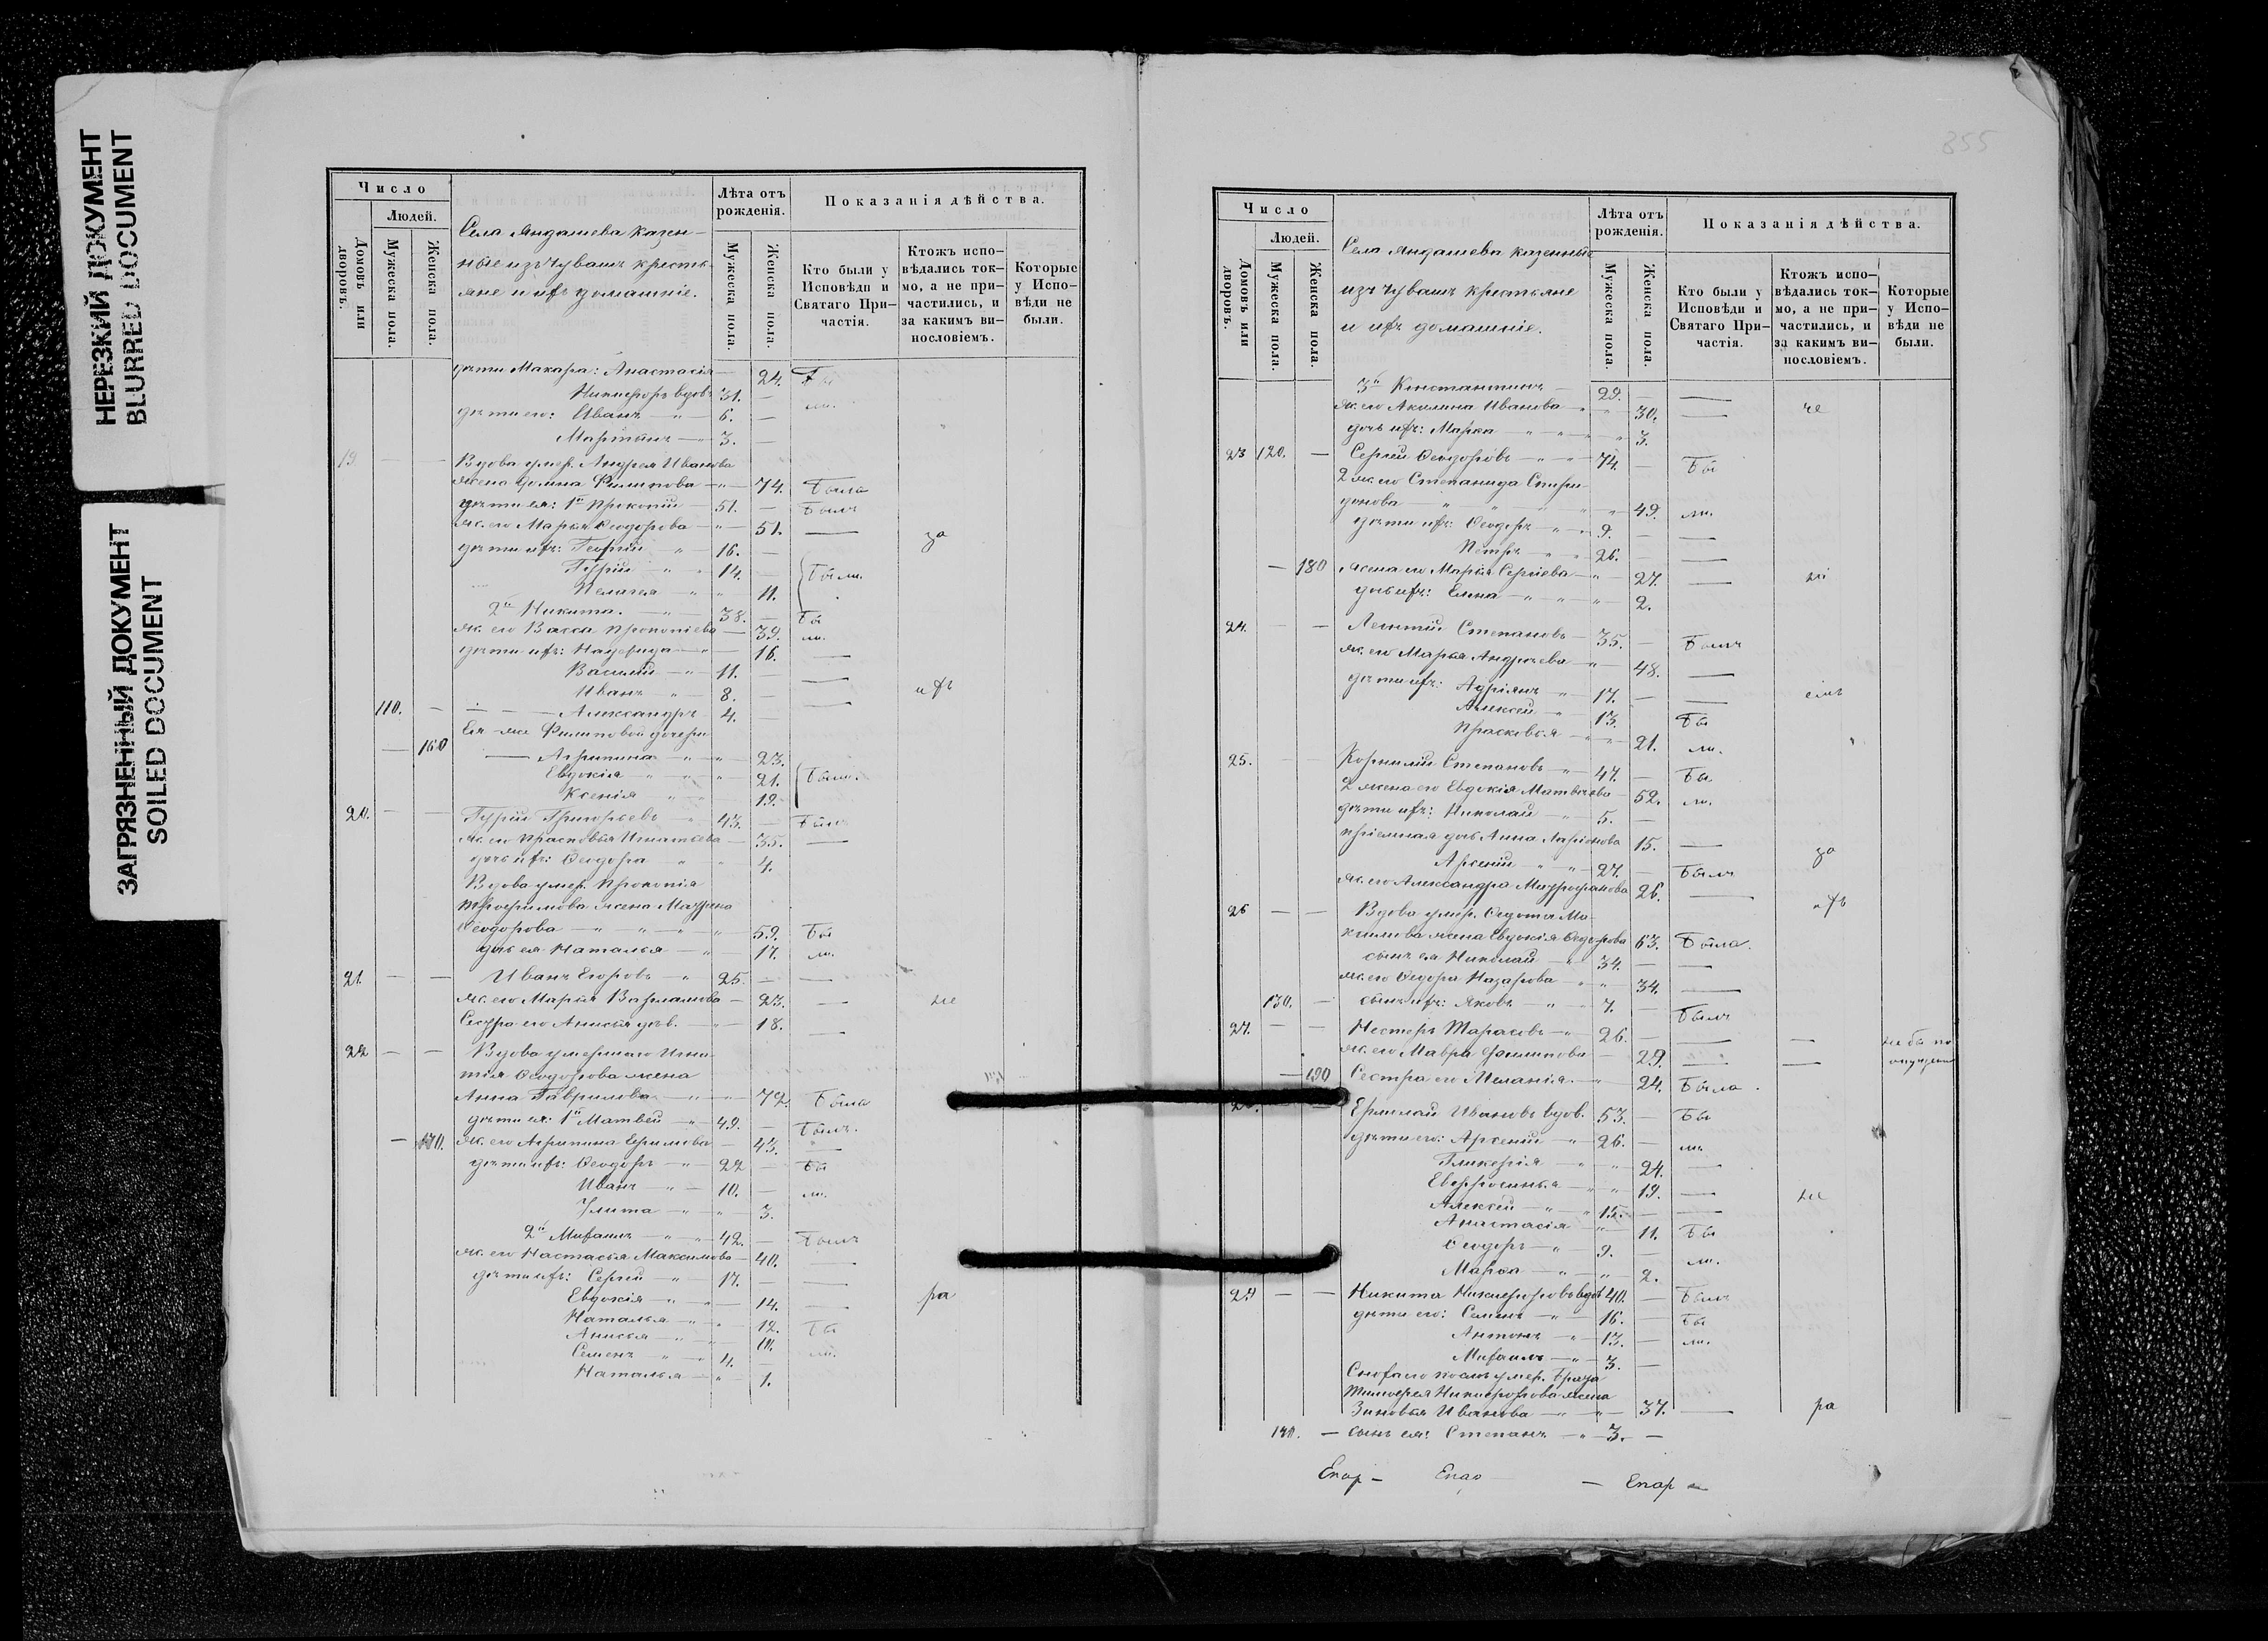 НЕРЕЗКИЙ ДОКУМЕНТ
BLURRED DOCUMENT
ЗАГРЯЗНЕННЫЙ ДОКУМЕНТ
SOILED DOCUMENT
Число
Людей.
Домовъ или дворовъ.
Мужеска пола.
Женска пола.
Села Яндашева казен-
ные изъ чувашъ кресть-
яне и ихъ домашніе.
Лѣта отъ рожденія.
Мужеска пола.
Женска пола.
Показанія дѣйства.
Кто были у Исповѣди и Святаго При-частія.
Ктожъ испо-вѣдались ток-мо, а не при-частились, и за какимъ ви-нословіемъ.
Которые у Испо-вѣди не были.
дѣти Макара: Анастасія — 24. Бы
Никифоръ вдов. 31. —
дѣти его: Иванъ — 6. — ли.
Мартынъ — 3. —
19. — — Вдова умер. Андрея Иванова
жена Домна Филипова — 74. Была
дѣти ея: 1й Прокопій — 51. — Былъ
ж. его Марья Ѳеодорова — 51. — за
дѣти ихъ: Георгій — 16. —
Гурій — 14. — Были.
Пелагея — 11.
2й Никита. — 38. — Бы
ж. его Васса Прокопіева — 39. ли.
дѣти ихъ: Надежда — 16. —
Василій — 11. — —
Иванъ — 8. — — ихъ
110. — Александръ 4.
Ея же Филиповой дочери
— 160 Агрипина — 23.
Евдокія — 21. Были.
Ксенія — 19.
20. — — Гурій Григорьевъ — 43. — Былъ
ж. его Прасковья Игнатьева — 35. —
дочь ихъ: Ѳеодора — 4.
Вдова умер. Прокопія
Трофимова жена Матрена
Ѳеодорова — 59. Бы
дочь ея Наталья — 17. ли.
21. — — Иванъ Егоровъ — 25. — —
ж. его Марья Варламова — 23. — не
Сестра его Анисья дѣв. — 18. —
22 — — Вдова умершаго Игна-
тія Ѳеодорова жена
Анна Гаврилова — 72. Была
дѣти ея: 1й Матвей — 49. — Былъ.
— 170. ж. его Агрипина Ефимова — 43. —
дѣти ихъ: Ѳеодоръ — 22 — Бы
Иванъ — 10. — ли.
Улита — 3.
2й Михаилъ — 42. — Былъ
ж. его Настасья Максимова — 40. —
дѣти ихъ: Сергій — 17. — —
Евдокія — 14. — ра
Наталья — 12. Бы
Анисья — 10. ли.
Семенъ — 4. —
Наталья — 1.
355
Число
Людей.
Домовъ или дворовъ.
Мужеска пола.
Женска пола.
Села Яндашева казенные
изъ чувашъ крестьяне
и ихъ домашніе.
Лѣта отъ рожденія.
Мужеска пола.
Женска пола.
Показанія дѣйства.
Кто были у Исповѣди и Святаго При-частія.
Ктожъ испо-вѣдались ток-мо, а не при-частились, и за какимъ ви-нословіемъ.
Которые у Испо-вѣди не были.
3й Константинъ — 29. —
ж. его Акилина Иванова — 30. —
дочь ихъ: Марѳа — 3.
23 120. — Сергій Ѳеодоровъ — 74. — Бы
2 ж. его Степанида Спири-
донова — 49. ли.
дѣти ихъ: Ѳеодоръ — 9. — —
Петръ — 26. — —
— 180 жена его Марья Сергіева — 27. —
дочь ихъ: Елена — 2.
24. — — Леонтій Степановъ — 35. — Былъ
ж. его Марья Андреева — 48. —
дѣти ихъ: Адріянъ — 17. — —
Алексей — 13. Бы
Прасковья — 21. ли.
25. — — Корнилій Степановъ — 47. — Бы
2 жена его Евдокія Матвѣева 52. ли.
дѣти ихъ: Николай — 5. —
пріемная дочь Анна Ларіонова 15. — за
Арсеній — 27. — Былъ
ж. его Александра Митрофанова 26. — ихъ
26 — — Вдова умер. Ѳедота Ма-
ксимова жена Евдокія Ѳедорова 63. Была.
сынъ ея Николай — 34. — —
ж. его Ѳедора Назарова — 34. —
130. — сынъ ихъ: Яковъ — 7. — Былъ
27. — — Несторъ Тарасовъ — 26. — — — не бы по
ж. его Мавра Филипова — 29. — — опущенію
— 190 Сестра его Меланія — 24. Была.
Ермолай Ивановъ вдов. 53. — Бы
дѣти его: Арсеній — 26. — ли.
Гликерія — 24. —
Евфросинья — 19. — не
Алексей — 15. — —
Анастасія — 11. Бы
Ѳеодоръ — 9. — ли.
Марѳа — 2.
29 — — Никита Никифоровъ вдов 40. — Былъ
дѣти его: Семенъ — 16. — Бы
Антонъ — 13. — ли.
Михаилъ — 3. —
Сноха его послѣ умер. брата
Тимофея Никифорова жена
Зиновья Иванова — 37. — ра
140. — сынъ ея: Степанъ — 3. —